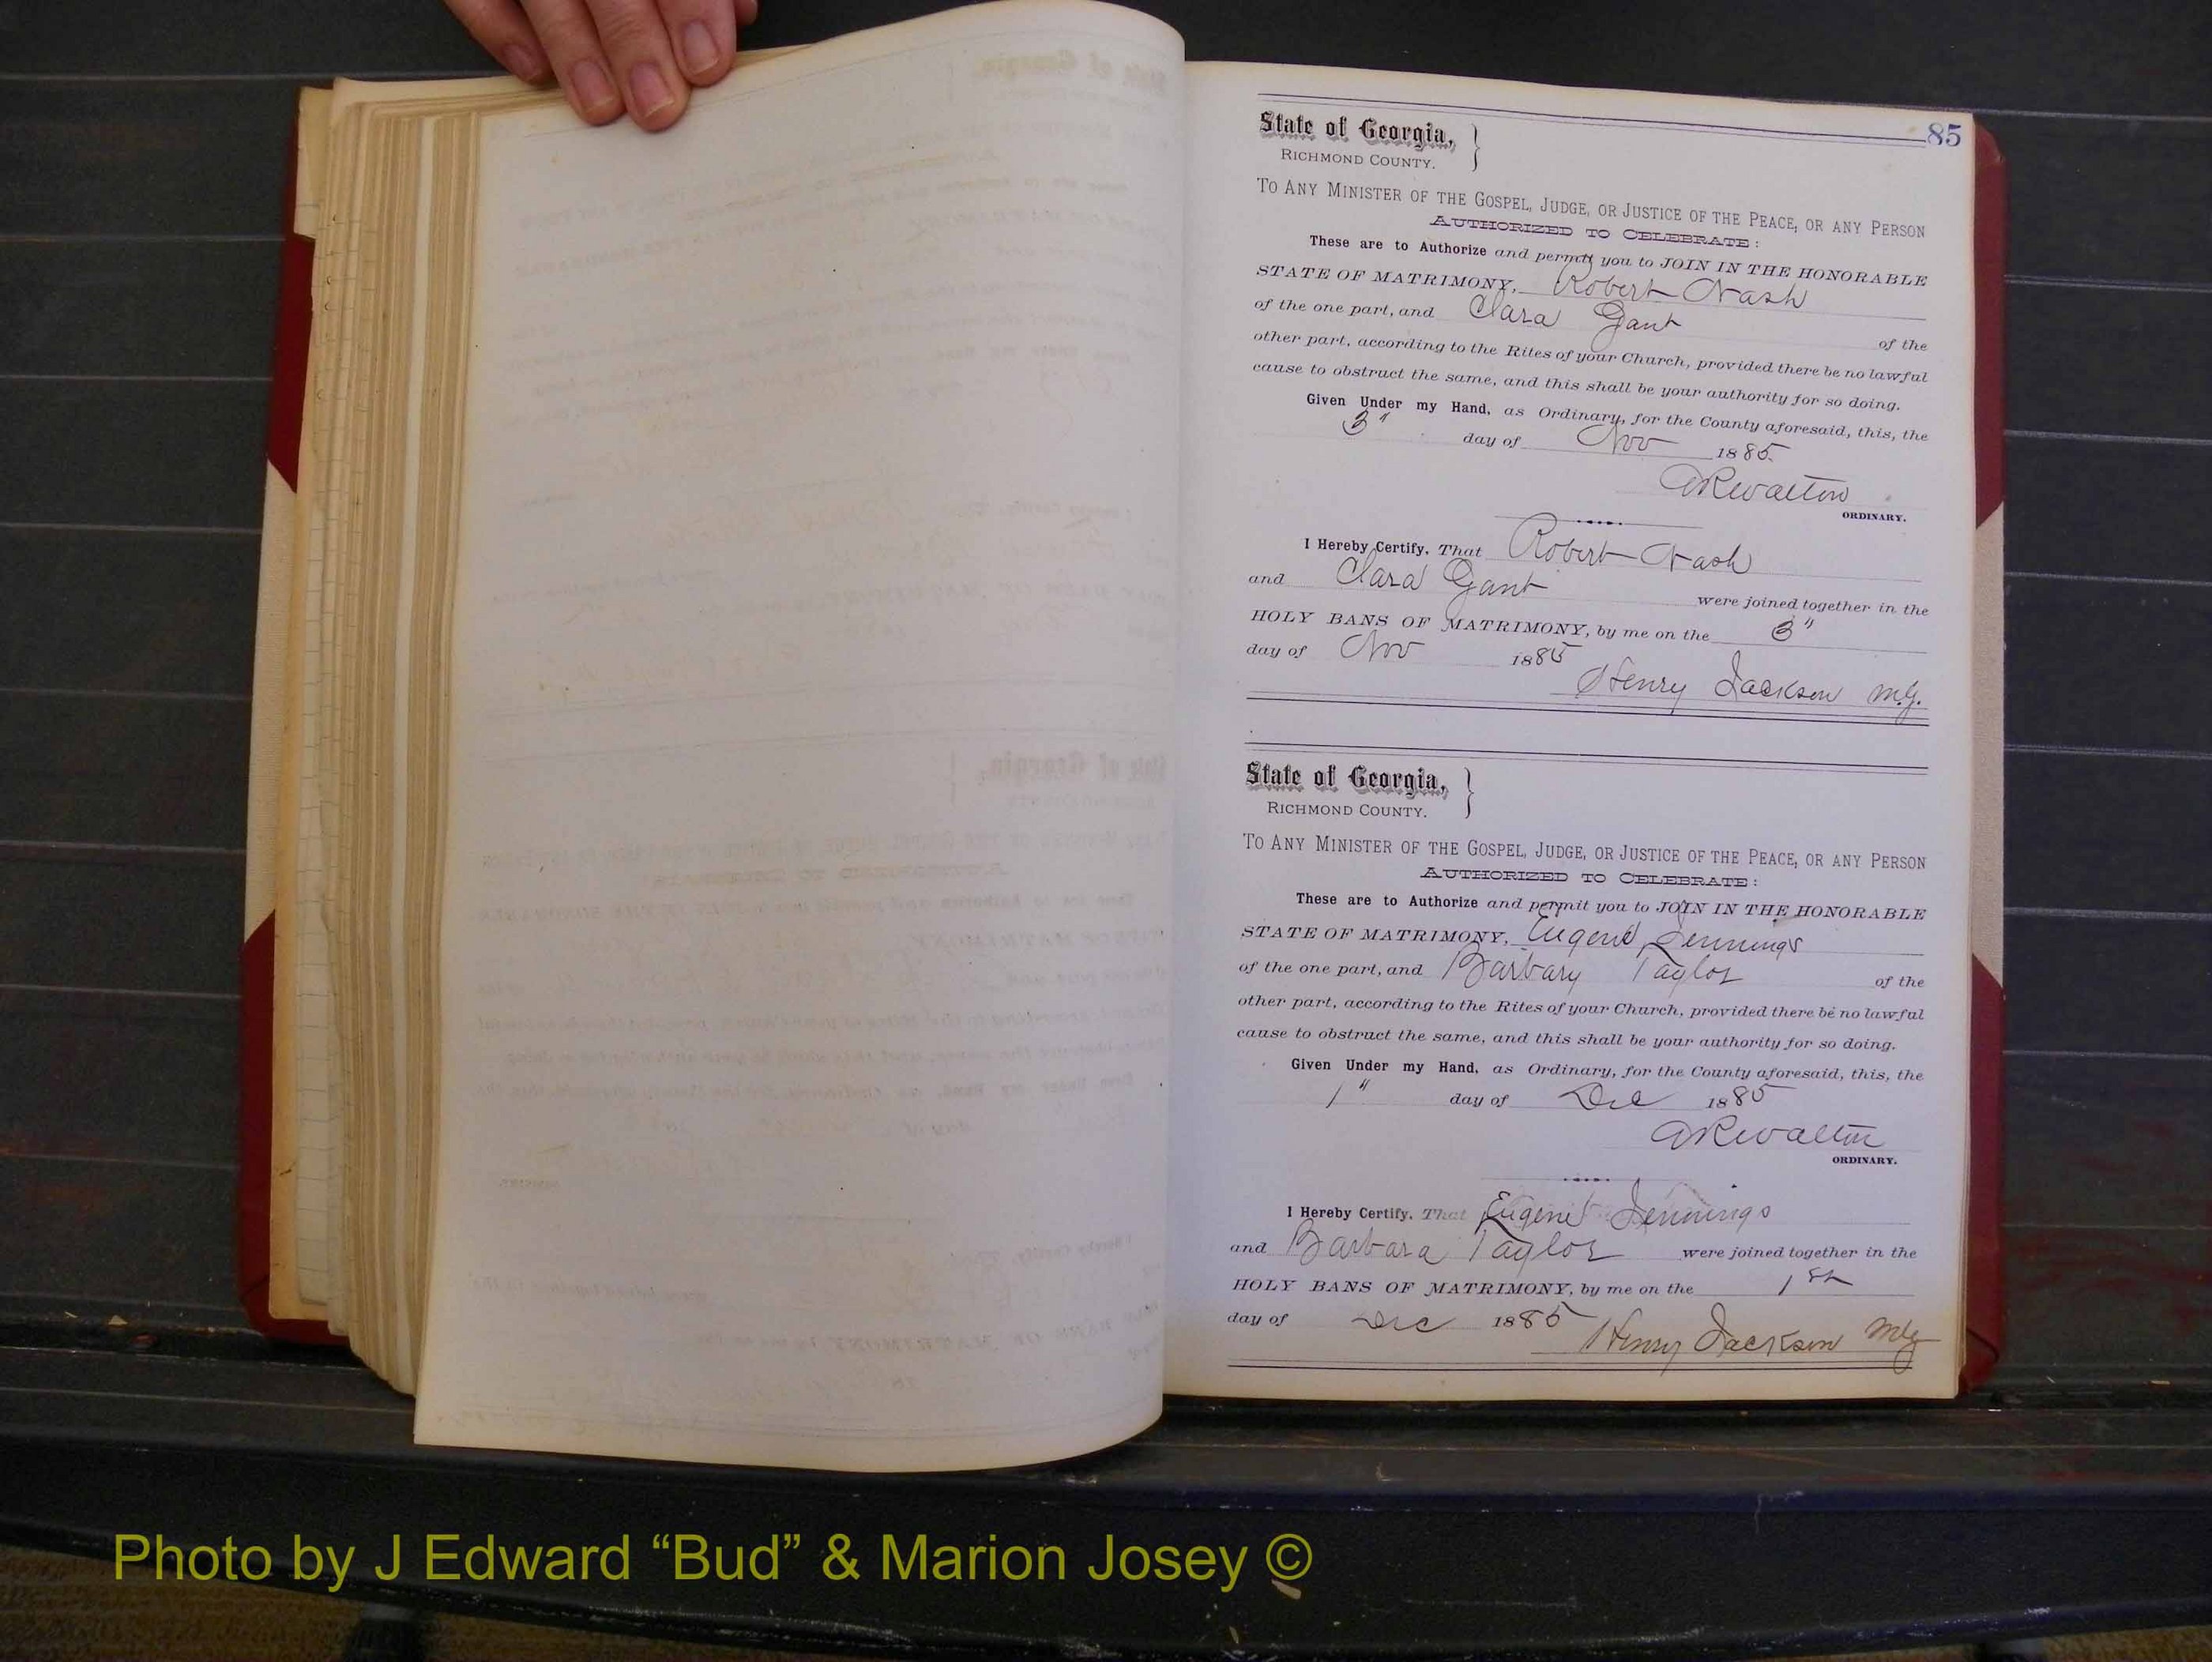 85
State of Georgia,
RICHMOND COUNTY.
TO ANY MINISTER OF THE GOSPEL, JUDGE, OR JUSTICE OF THE PEACE, OR ANY PERSON
AUTHORIZED TO CELEBRATE:
These are to Authorize and permit you to JOIN IN THE HONORABLE
STATE OF MATRIMONY, Robert Nash
of the one part, and Clara Gant of the
other part, according to the Rites of your Church, provided there be no lawful
cause to obstruct the same, and this shall be your authority for so doing.
Given Under my Hand, as Ordinary, for the County aforesaid, this, the
3" day of Nov 1885.
ARWalton
ORDINARY.
I Hereby Certify, That Robert Nash
and Clara Gant were joined together in the
HOLY BANS OF MATRIMONY, by me on the 3"
day of Nov 1885
Henry Jackson M.G.
State of Georgia,
RICHMOND COUNTY.
TO ANY MINISTER OF THE GOSPEL, JUDGE, OR JUSTICE OF THE PEACE, OR ANY PERSON
AUTHORIZED TO CELEBRATE:
These are to Authorize and permit you to JOIN IN THE HONORABLE
STATE OF MATRIMONY, Eugene Jennings
of the one part, and Barbary Taylor of the
other part, according to the Rites of your Church, provided there be no lawful
cause to obstruct the same, and this shall be your authority for so doing.
Given Under my Hand, as Ordinary, for the County aforesaid, this, the
1" day of Dec 1885
ARWalton
ORDINARY.
I Hereby Certify, That Eugene Jennings
and Barbara Taylor were joined together in the
HOLY BANS OF MATRIMONY, by me on the 1st
day of Dec 1885
Henry Jackson MG
Photo by J Edward “Bud” & Marion Josey ©